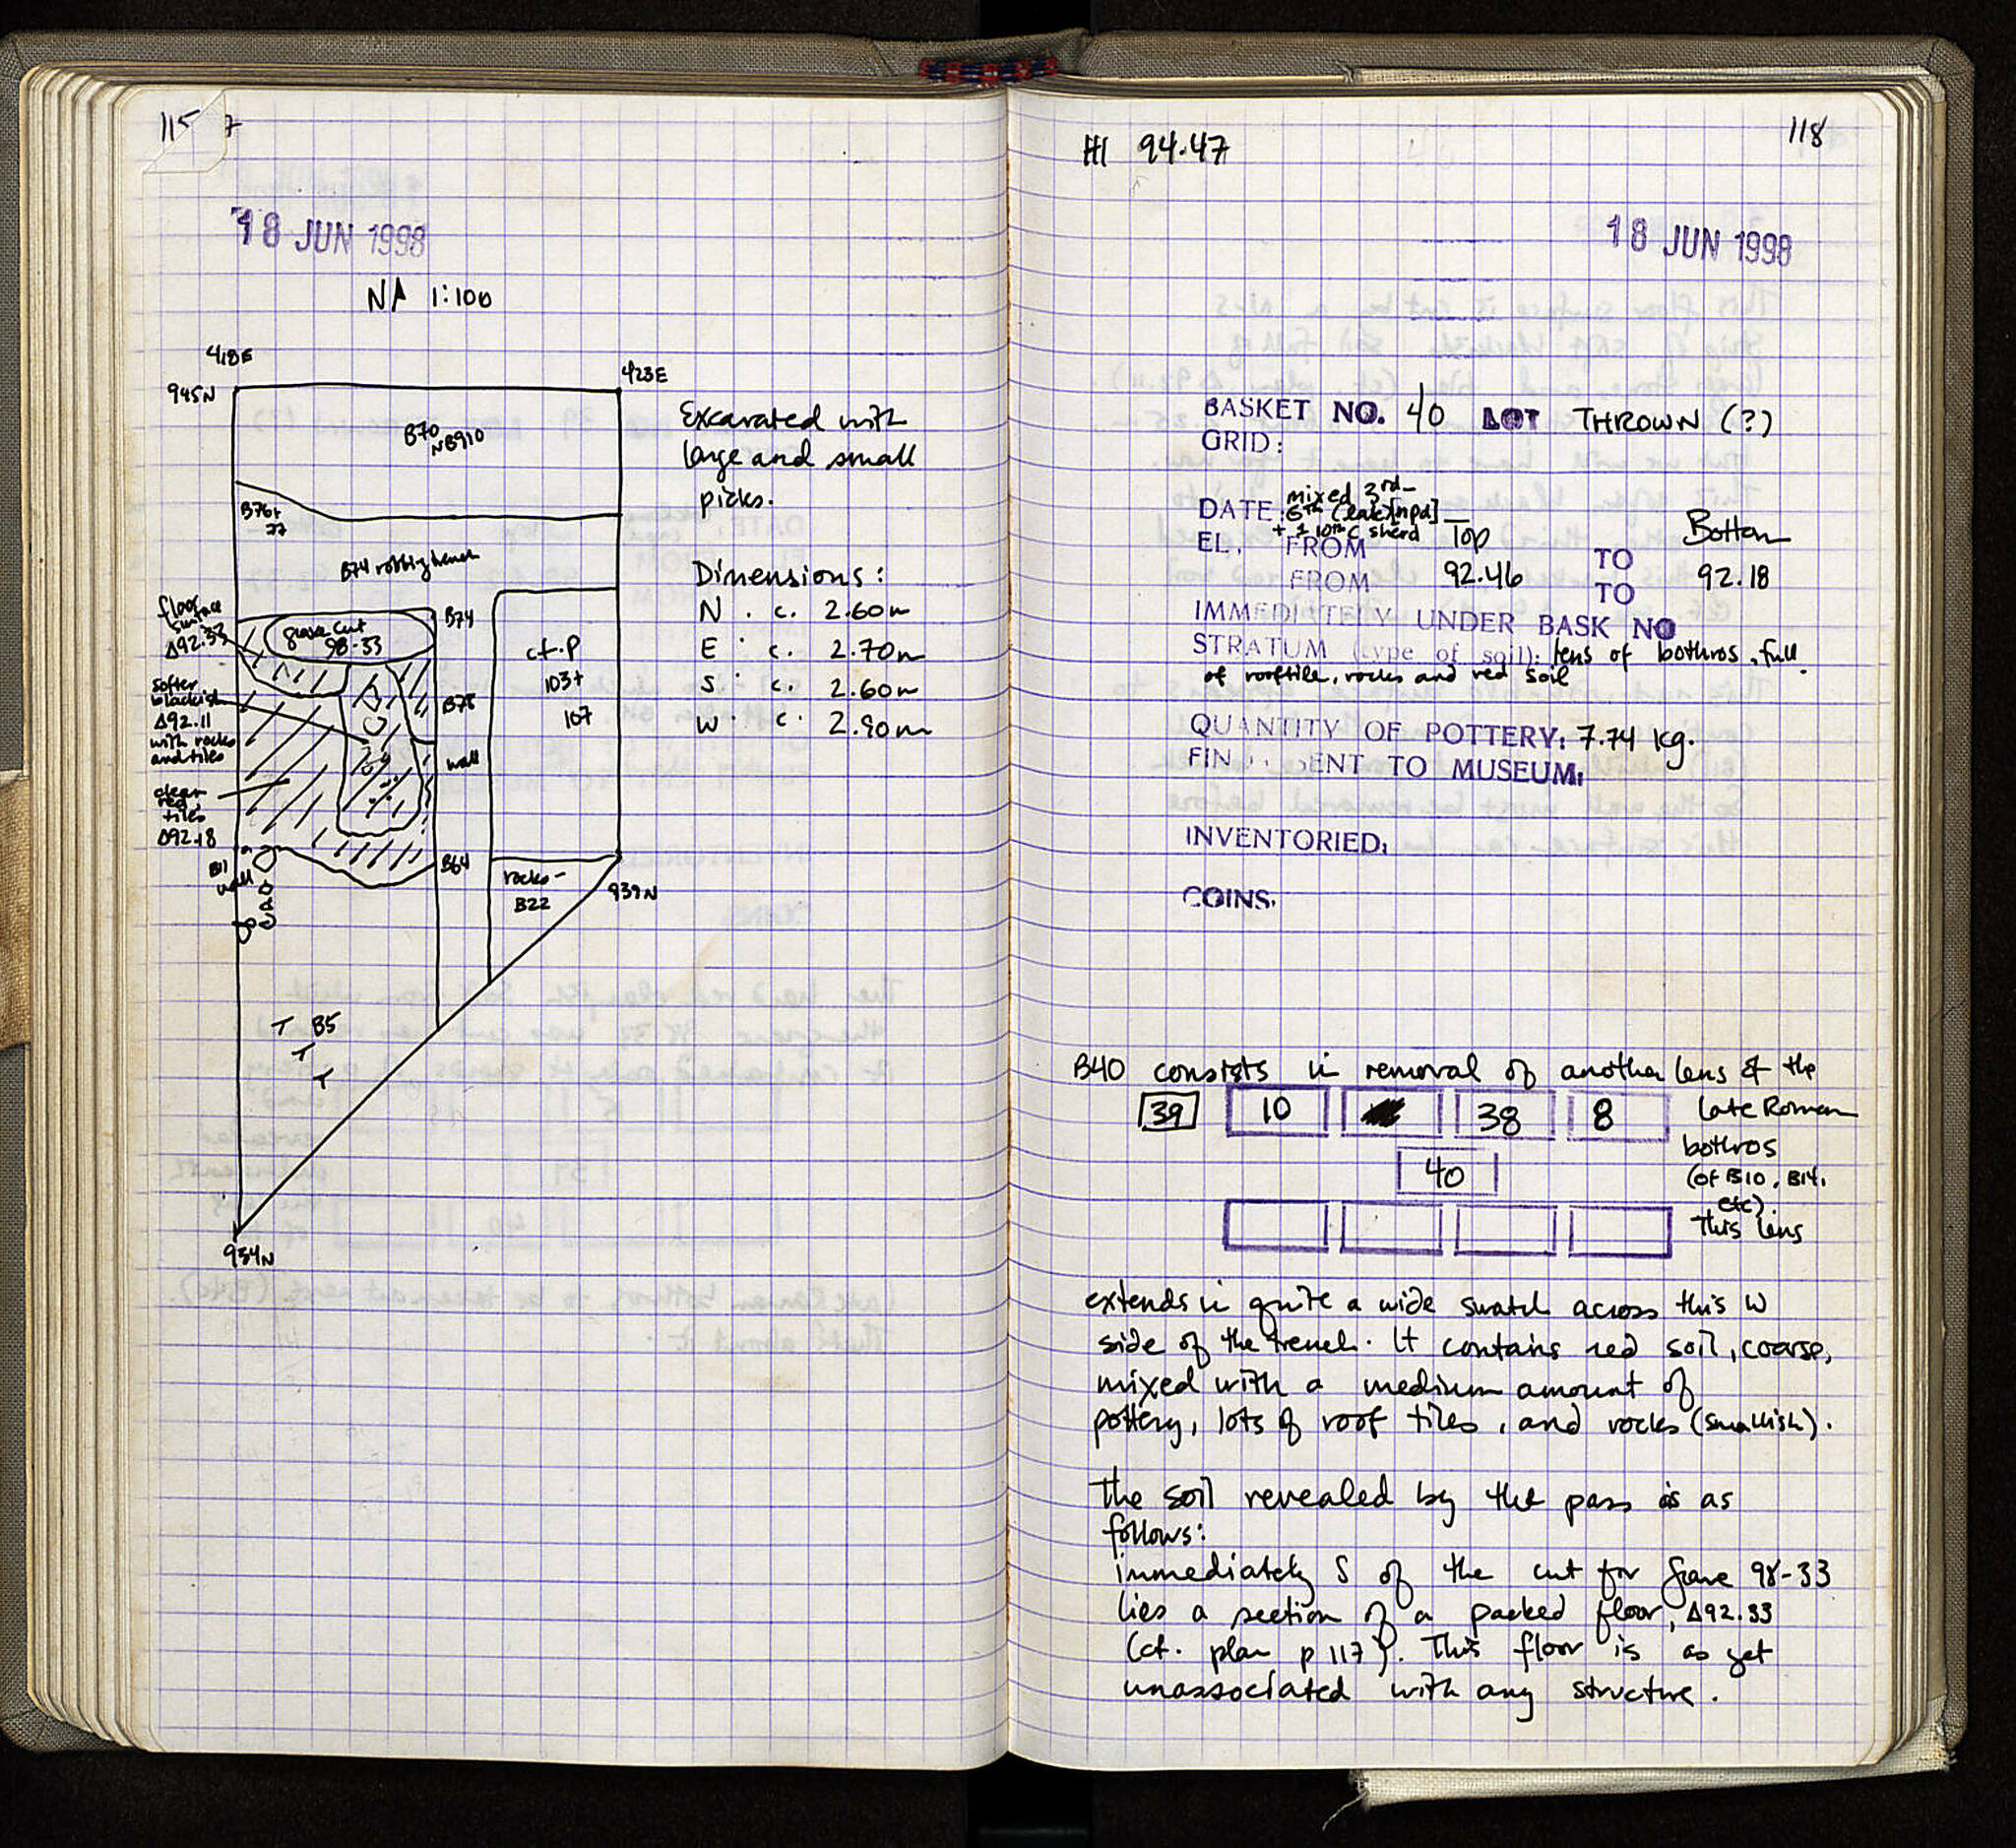 115 7
18 JUN 1998
1:100
418E
423E
945N
B70
NB910
B76+
77
B74 robbing trench
floor
surface
Δ92.33
grave cut
98-33
B74
softer
blackish
Δ92.11
with rocks
and tiles
B78
wall
clean
red,
tiles
Δ92.18
B11
wall
B64
cf. P
103+
107
rocks -
B22
939N
T B5
T
T
934N
Excavated with
large and small
picks.
Dimensions:
N . c. 2.60m
E : c. 2.70m
S : c. 2.60m
W . c. 2.90m
118
HI 94.47
18 JUN 1998
BASKET NO. 40 LOT THROWN (?)
GRID:
mixed 3rd-
DATE: 6th (late) [npd]
+ 1 10th C sherd
Top Bottom
EL. FROM TO
FROM 92.46 TO 92.18
IMMEDIATELY UNDER BASK NO
STRATUM (type of soil): lens of bothros, full
of rooftile, rocks and red soil
QUANTITY OF POTTERY: 7.74 kg.
FIN SENT TO MUSEUM:
INVENTORIED:
COINS.
B40 consists in removal of another lens of the
39 10 38 8 late Roman
bothros
40 (of B10, B14,
etc).
This lens
extends in quite a wide swath across this W
side of the trench. It contains red soil, coarse,
mixed with a medium amount of
pottery, lots of roof tiles, and rocks (smallish).
The soil revealed by the pass is as
follows:
immediately S of the cut for grave 98-33
lies a section of a packed floor, Δ92.33
(cf. plan p 117). This floor is as yet
unassociated with any structure.